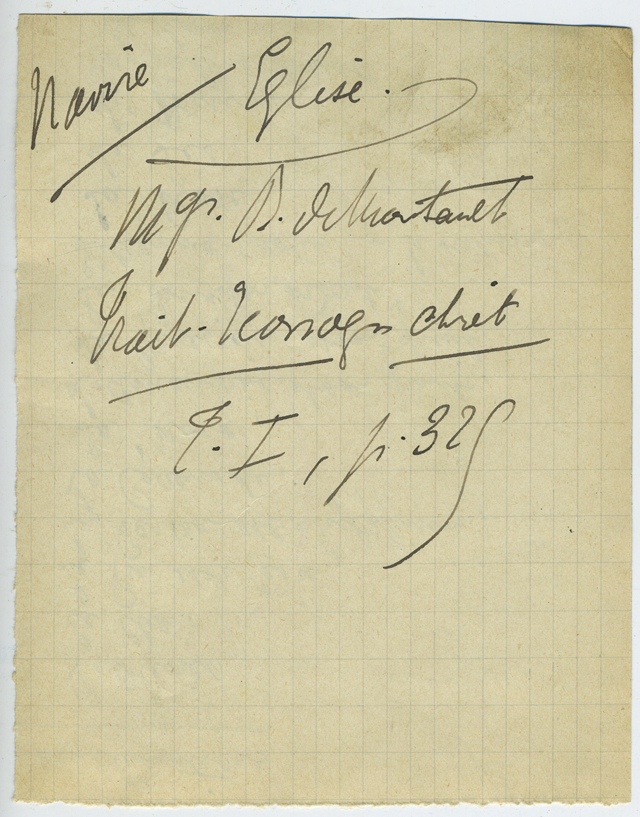 Navire
Eglise.
Mgr. B. de Montault
Trait. Iconogr chrét
T. I, p. 325